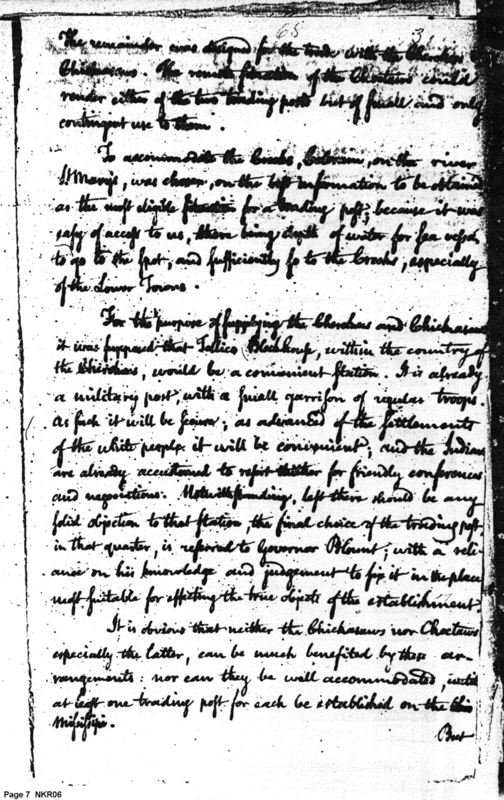 65
The remainder was designed for the trade with the Cherokees &
Chickasaws. The remote situation of the Choctaws would
render either of the two trading posts but of small and only
contingent use to them.
To accommodate the Creeks, Colerain, on the river
St. Mary's, was chosen, on the best information to be obtained
as the most eligible situation for a trading post; because it was
easy of access to us, there being depth of water for sea vessels
to go to the spot; and sufficiently so to the Creeks, especially
of the Lower Towns.
For the purpose of supplying the Cherokees and Chickasaws
it was supposed that Tellico Blockhouse, within the country of
the Cherokees, would be a convenient station. It is already
a military post, with a small garrison of regular troops.
As such it will be secure; as advanced of the settlements
of the white people it will be convenient; and the Indians
are already accustomed to resort thither for friendly conferences
and negociations. Notwithstanding, lest there should be any
solid objection to that station, the final choice of the trading post
in that quarter, is referred to Governor Blount; with a reli-
ance on his knowledge and judgement to fix it in the place
most suitable for effecting the true objects of the establishment.
It is obvious that neither the Chickasaws nor Choctaws
especially the latter, can be much benefited by these ar-
rangements: nor can they be well accommodated, until
at least one trading post for each be established on the
Missisipi.
But
Page 7 NKR06